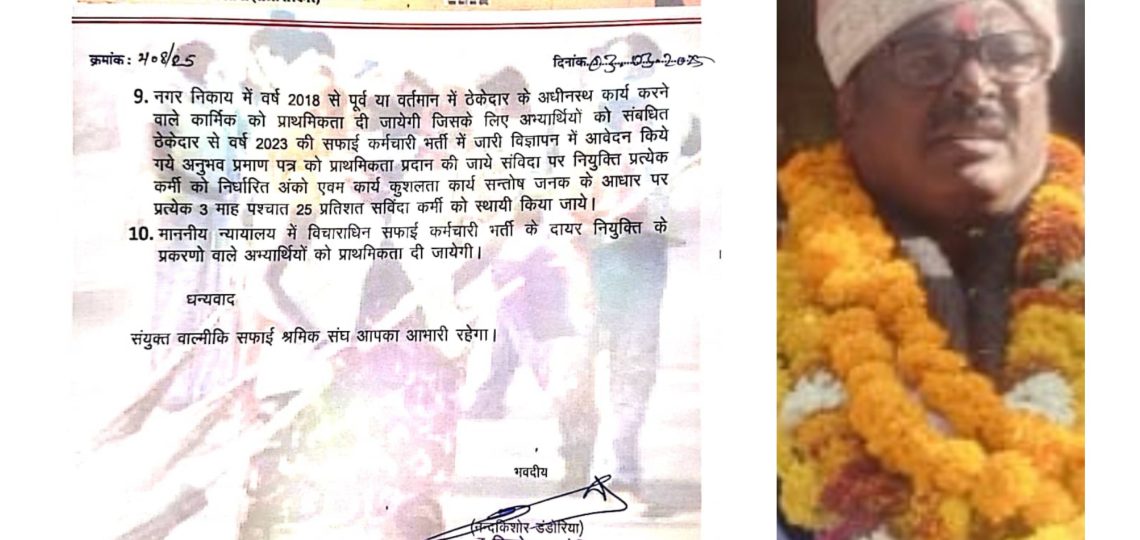 क्रमांक: 408/25
दिनांक
9. नगर निकाय में वर्ष 2018 से पूर्व या वर्तमान में ठेकेदार के अधीनस्थ कार्य करने
वाले कार्मिक को प्राथमिकता दी जायेगी जिसके लिए अभ्यार्थियों को संबधित
ठेकेदार से वर्ष 2023 की सफाई कर्मचारी भर्ती में जारी विज्ञापन में आवेदन किये
गये अनुभव प्रमाण पत्र को प्राथमिकता प्रदान की जाये संविदा पर नियुक्ति प्रत्येक
कर्मी को निर्धारित अंको एवम कार्य कुशलता कार्य सन्तोष जनक के आधार पर
प्रत्येक 3 माह पश्चात 25 प्रतिशत सविंदा कर्मी को स्थायी किया जाये।
10. माननीय न्यायालय में विचाराधिन सफाई कर्मचारी भर्ती के दायर नियुक्ति के
प्रकरणो वाले अभ्यार्थियों को प्राथमिकता दी जायेगी।
धन्यवाद
संयुक्त वाल्मीकि सफाई श्रमिक संघ आपका आभारी रहेगा।
भवदीय
(नन्दकिशोर-डंडोरिया)